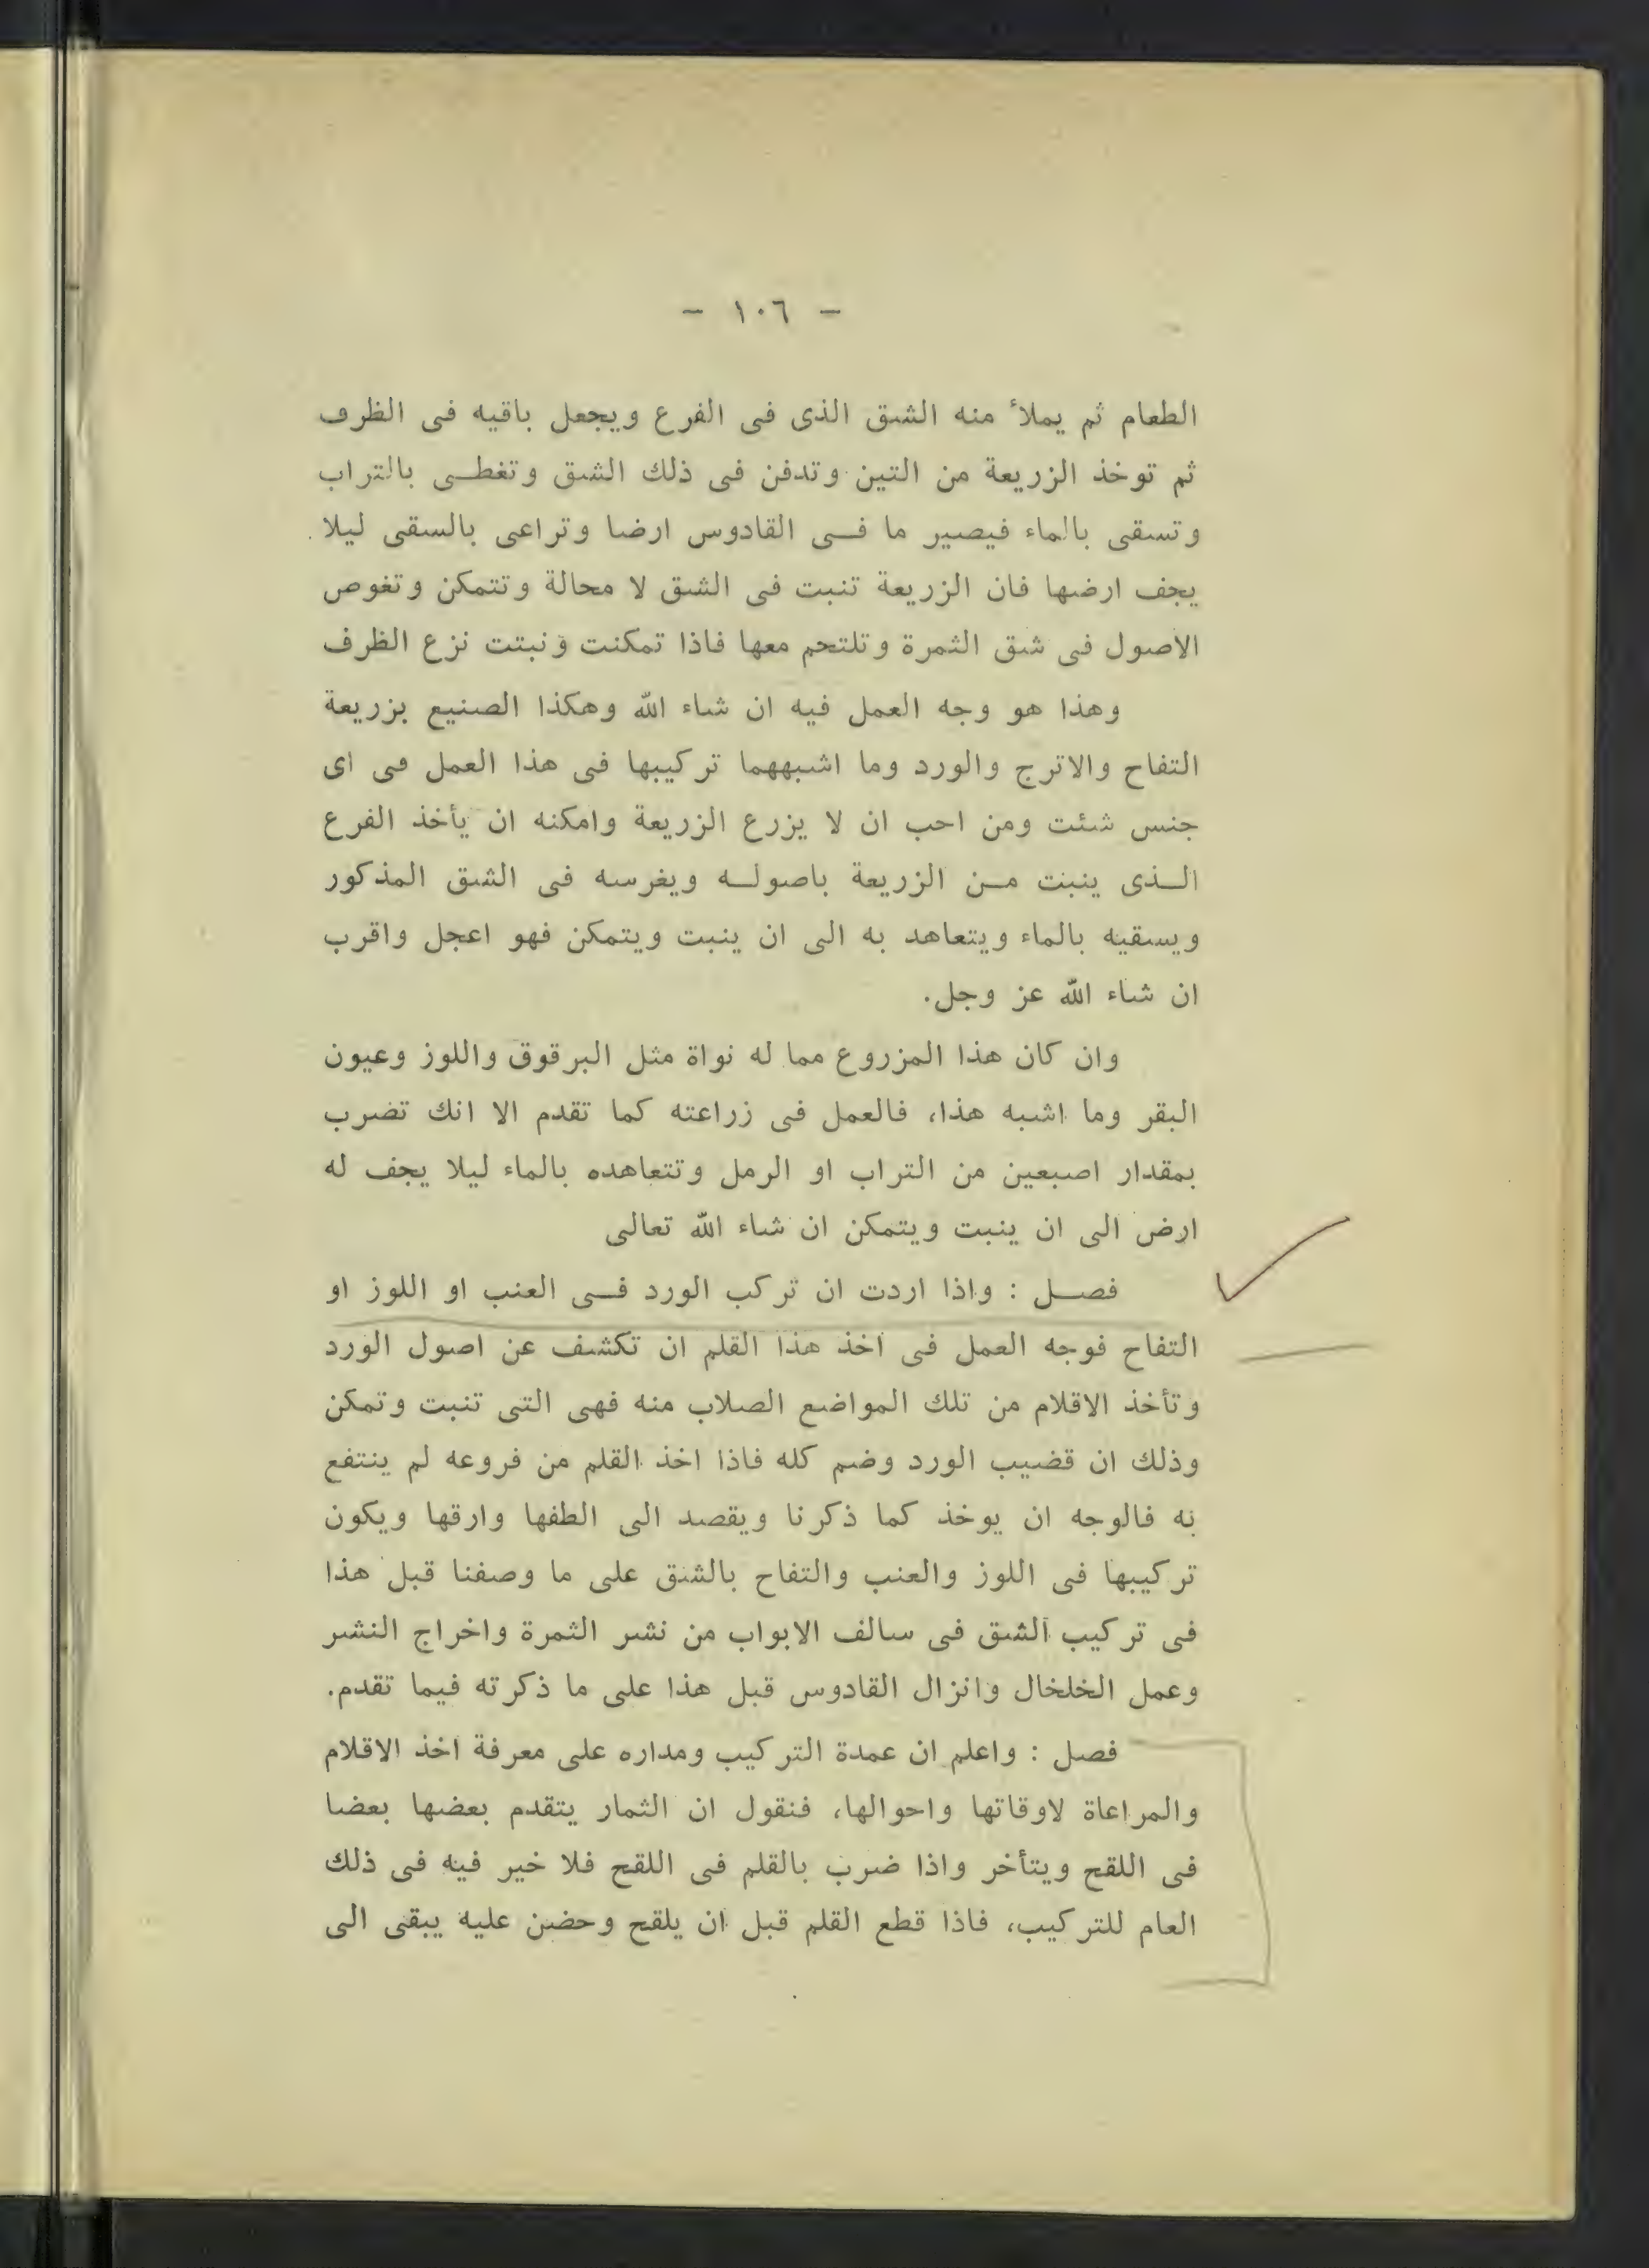 - ١٠٦ -
الطعام ثم يملأ منه الشق الذى فى الفرع ويجعل باقيه فى الظرف
ثم توخذ الزريعة من التين وتدفن فى ذلك الشق وتغطى بالتراب
وتسقى بالماء فيصير ما فى القادوس ارضا وتراعى بالسقى ليلا
يجف ارضها فان الزريعة تنبت فى الشق لا محالة وتتمكن وتغوص
الاصول فى شق الثمرة وتلتحم معها فاذا تمكنت ونبتت نزع الظرف
وهذا هو وجه العمل فيه ان شاء الله وهكذا الصنيع بزريعة
التفاح والاترج والورد وما اشبههما تركيبها فى هذا العمل فى اى
جنس شئت ومن احب ان لا يزرع الزريعة وامكنه ان يأخذ الفرع
الذى ينبت من الزريعة باصوله ويغرسه فى الشق المذكور
ويسقيه بالماء ويتعاهد به الى ان ينبت ويتمكن فهو اعجل واقرب
ان شاء الله عز وجل.
وان كان هذا المزروع مما له نواة مثل البرقوق واللوز وعيون
البقر وما اشبه هذا، فالعمل فى زراعته كما تقدم الا انك تضرب
بمقدار اصبعين من التراب او الرمل وتتعاهده بالماء ليلا يجف له
ارض الى ان ينبت ويتمكن ان شاء الله تعالى
فصل : واذا اردت ان تركب الورد فى العنب او اللوز او
التفاح فوجه العمل فى اخذ هذا القلم ان تكشف عن اصول الورد
وتأخذ الاقلام من تلك المواضع الصلاب منه فهى التى تنبت وتمكن
وذلك ان قضيب الورد وضم كله فاذا اخذ القلم من فروعه لم ينتفع
به فالوجه ان يوخذ كما ذكرنا ويقصد الى الطفها وارقها ويكون
تركيبها فى اللوز والعنب والتفاح بالشق على ما وصفنا قبل هذا
فى تركيب الشق فى سالف الابواب من نشر الثمرة واخراج النشر
وعمل الخلخال وانزال القادوس قبل هذا على ما ذكرته فيما تقدم.
فصل : واعلم ان عمدة التركيب ومداره على معرفة اخذ الاقلام
والمراعاة لاوقاتها واحوالها، فنقول ان الثمار يتقدم بعضها بعضا
فى اللقح ويتأخر واذا ضرب بالقلم فى اللقح فلا خير فيه فى ذلك
العام للتركيب، فاذا قطع القلم قبل ان يلقح وحضن عليه يبقى الى